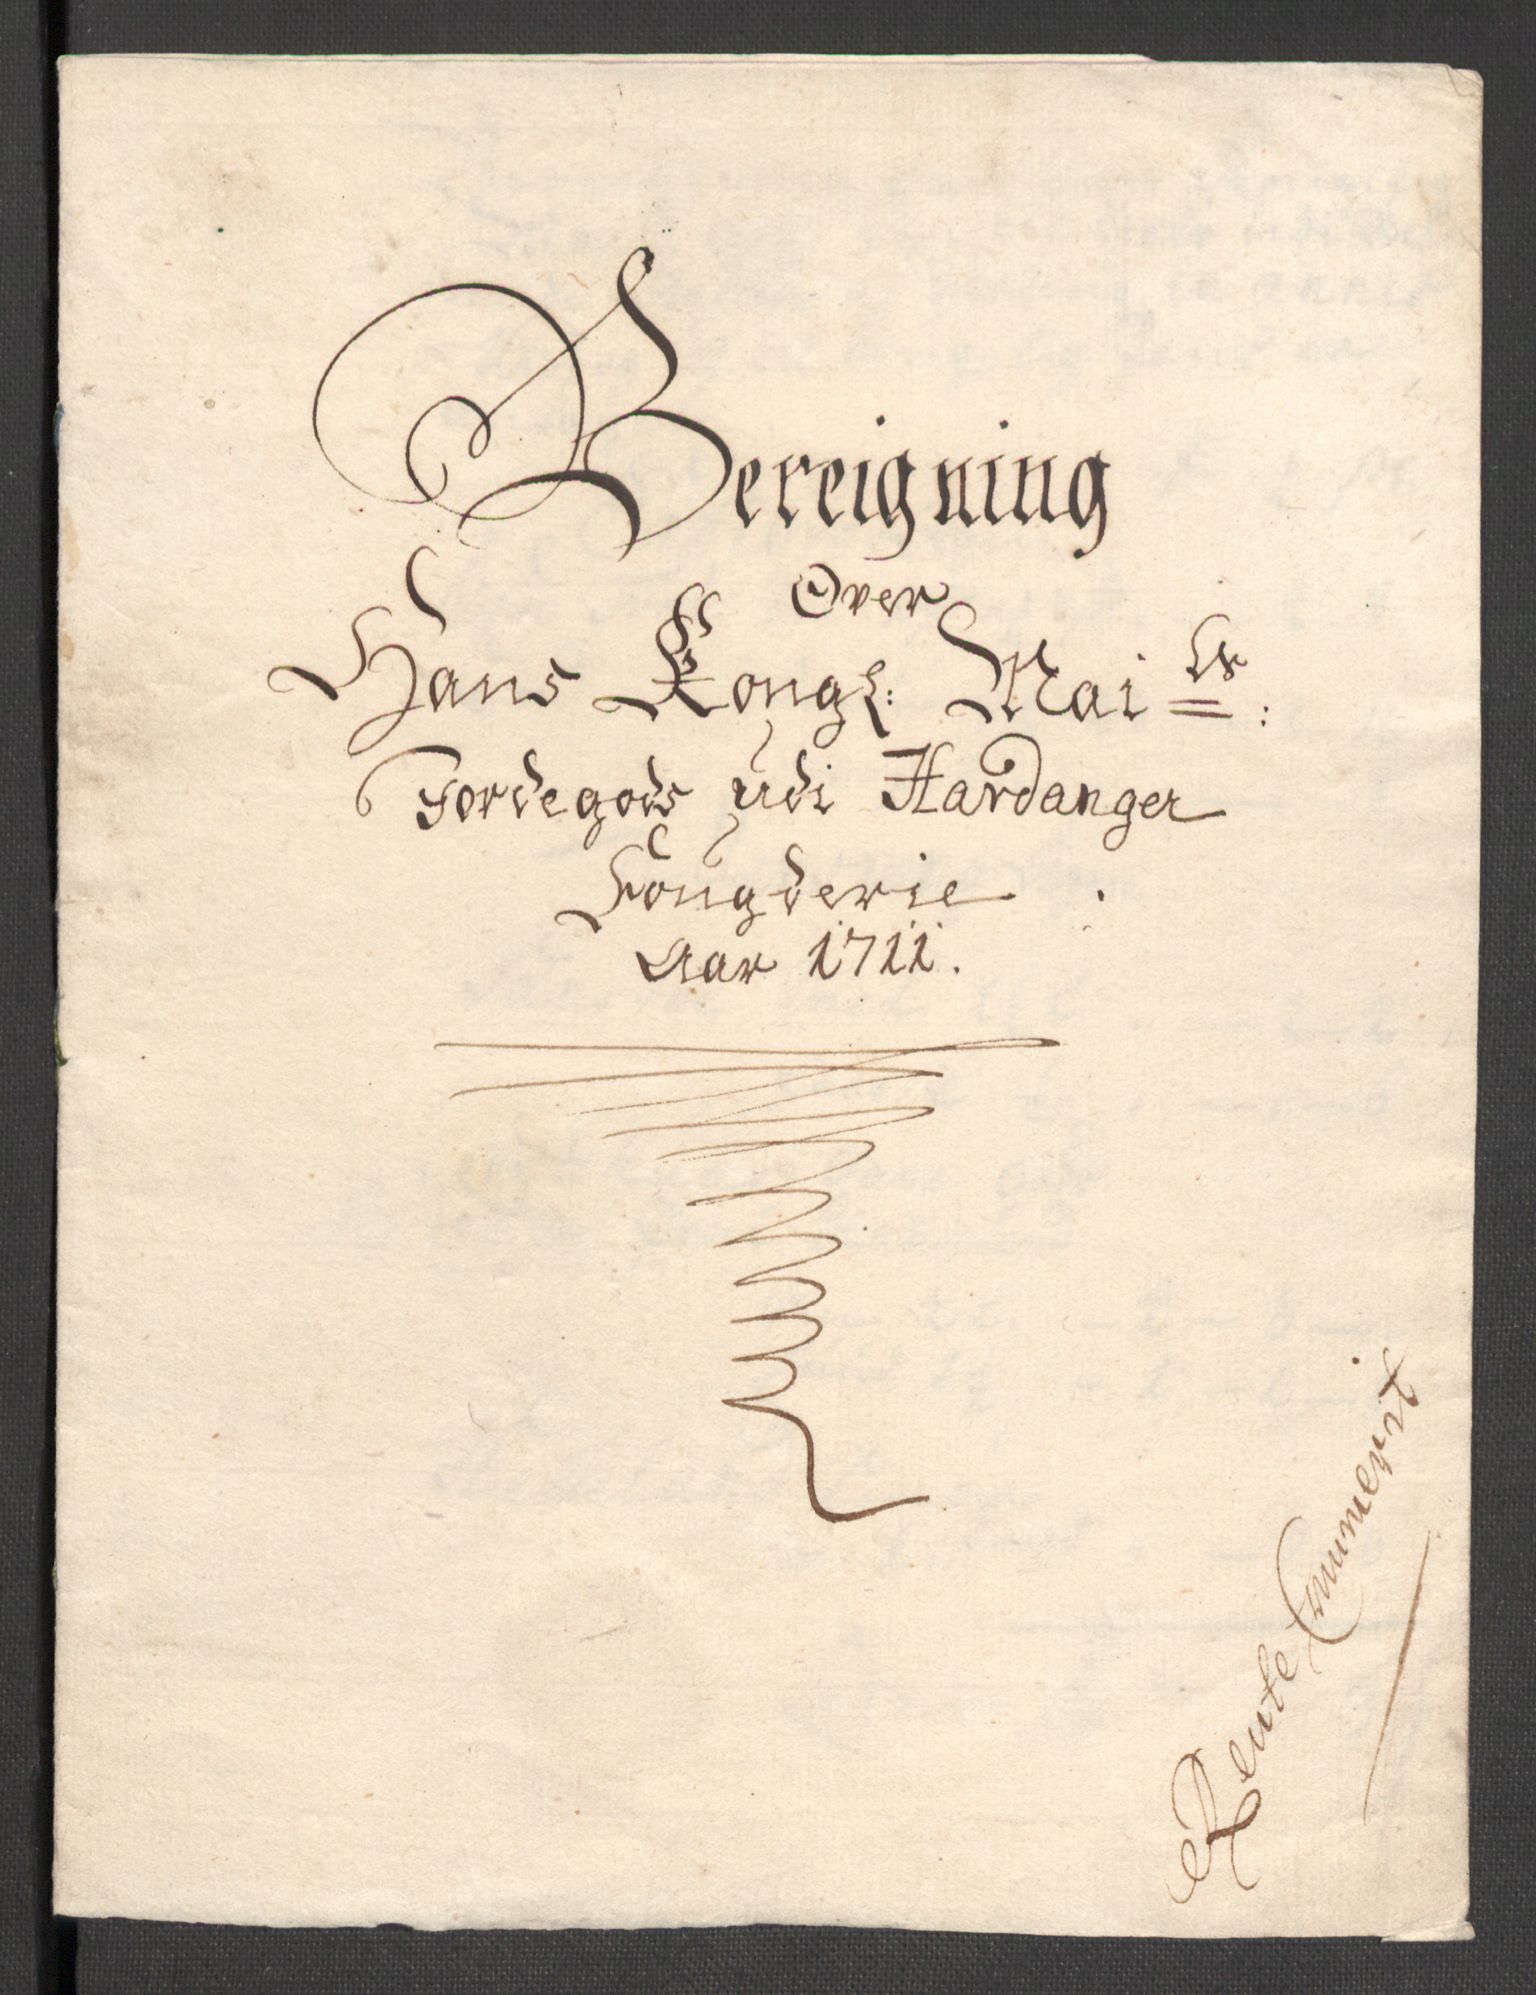 Bereigning
Over
Hans Kongl: Mai ts:
Jordegods udi Hardanger
Fougderie.
Aar 1711.
Rente Cammerit